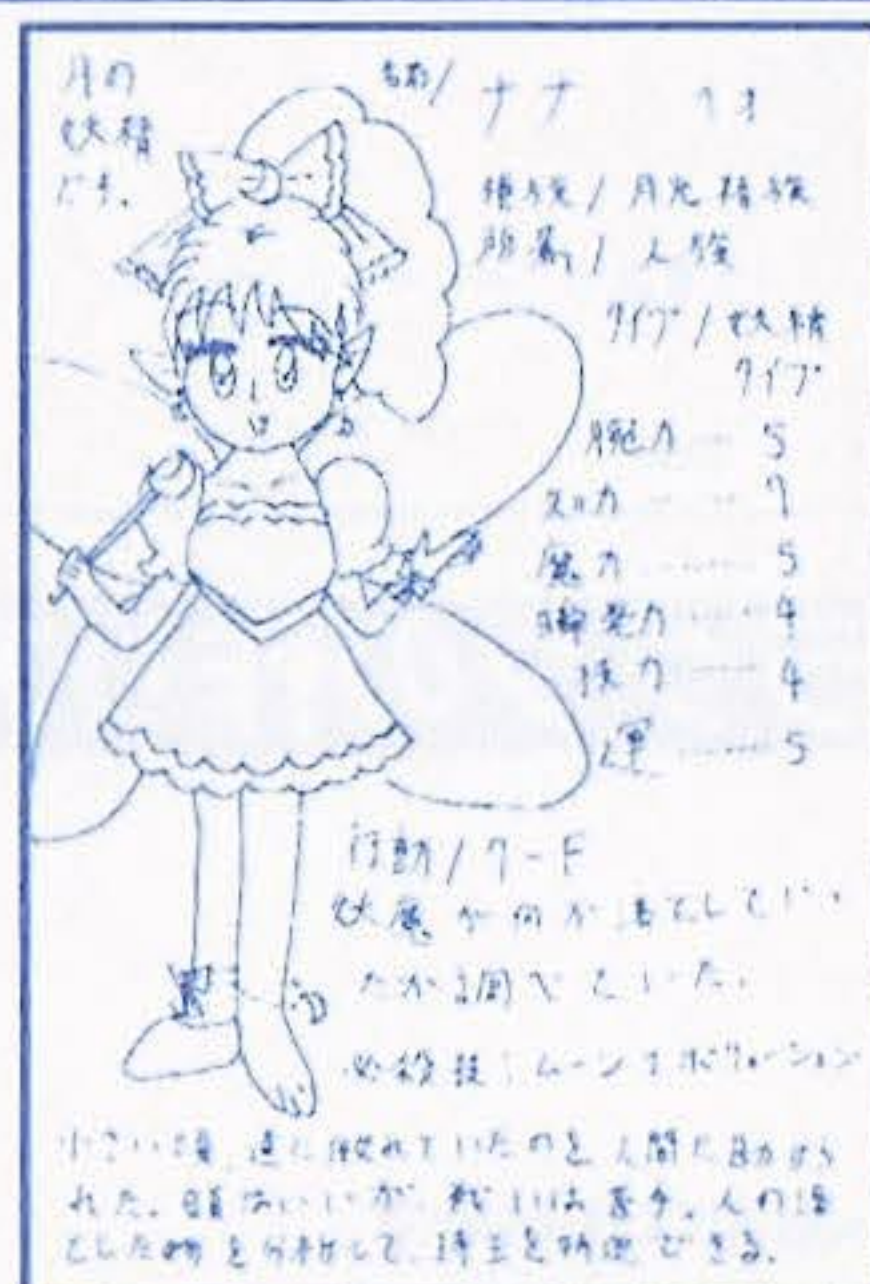 月の
妖精
です。
名前/ ナナ
種族/月光精族
所属/人族
タイプ/妖精
タイプ
腕力……5
知力……7
魔力……5
瞬発力……4
体力……4
運……5
行動/ワード
妖魔が何か落としてい
たか調べていた。
必殺技:ムーン
小さい頃、道に倒れていたのを人間に助けら
れた。頭はいいが、戦いは苦手。人の落
とした物を分析して、持主を特定できる。